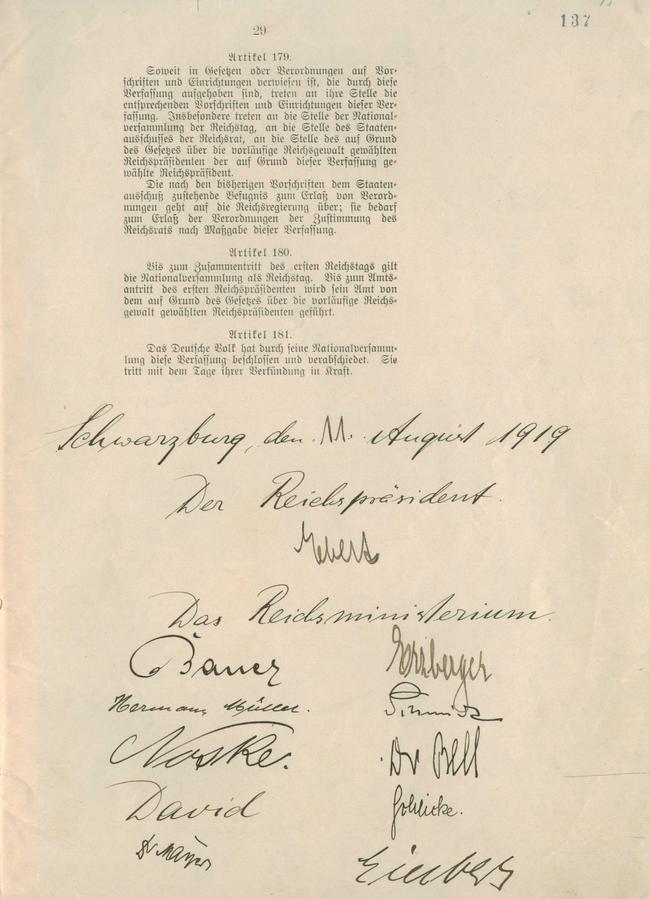 29
137
Artikel 179.
Soweit in Gesetzen oder Verordnungen auf Vor-
schriften und Einrichtungen verwiesen ist, die durch diese
Verfassung aufgehoben sind, treten an ihre Stelle die
entsprechenden Vorschriften und Einrichtungen dieser Ver-
fassung. Insbesondere treten an die Stelle der National-
versammlung der Reichstag, an die Stelle des Staaten-
ausschusses der Reichsrat, an die Stelle des auf Grund
des Gesetzes über die vorläufige Reichsgewalt gewählten
Reichspräsidenten der auf Grund dieser Verfassung ge-
wählte Reichspräsident.
Die nach den bisherigen Vorschriften dem Staaten-
ausschuß zustehende Befugnis zum Erlaß von Verord-
nungen geht auf die Reichsregierung über; sie bedarf
zum Erlaß der Verordnungen der Zustimmung des
Reichsrats nach Maßgabe dieser Verfassung.
Artikel 180.
Bis zum Zusammentritt des ersten Reichstags gilt
die Nationalversammlung als Reichstag. Bis zum Amts-
antritt des ersten Reichspräsidenten wird sein Amt von
dem auf Grund des Gesetzes über die vorläufige Reichs-
gewalt gewählten Reichspräsidenten geführt.
Artikel 181.
Das Deutsche Volk hat durch seine Nationalversamm-
lung diese Verfassung beschlossen und verabschiedet. Sie
tritt mit dem Tage ihrer Verkündung in Kraft.
Schwarzburg, den 11. August 1919
Der Reichspräsident.
Ebert
Das Reichsministerium.
Bauer Erzberger
Hermann Müller. Schmidt
Noske. Dr Bell
David Schlicke.
Dr Mayer Giesberts